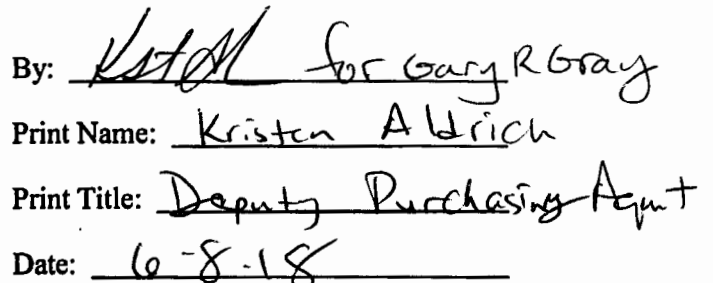 By: for Gary R Gray
Print Name: Kristen Aldrich
Print Title: Deputy Purchasing Agent
Date: 6-8-18